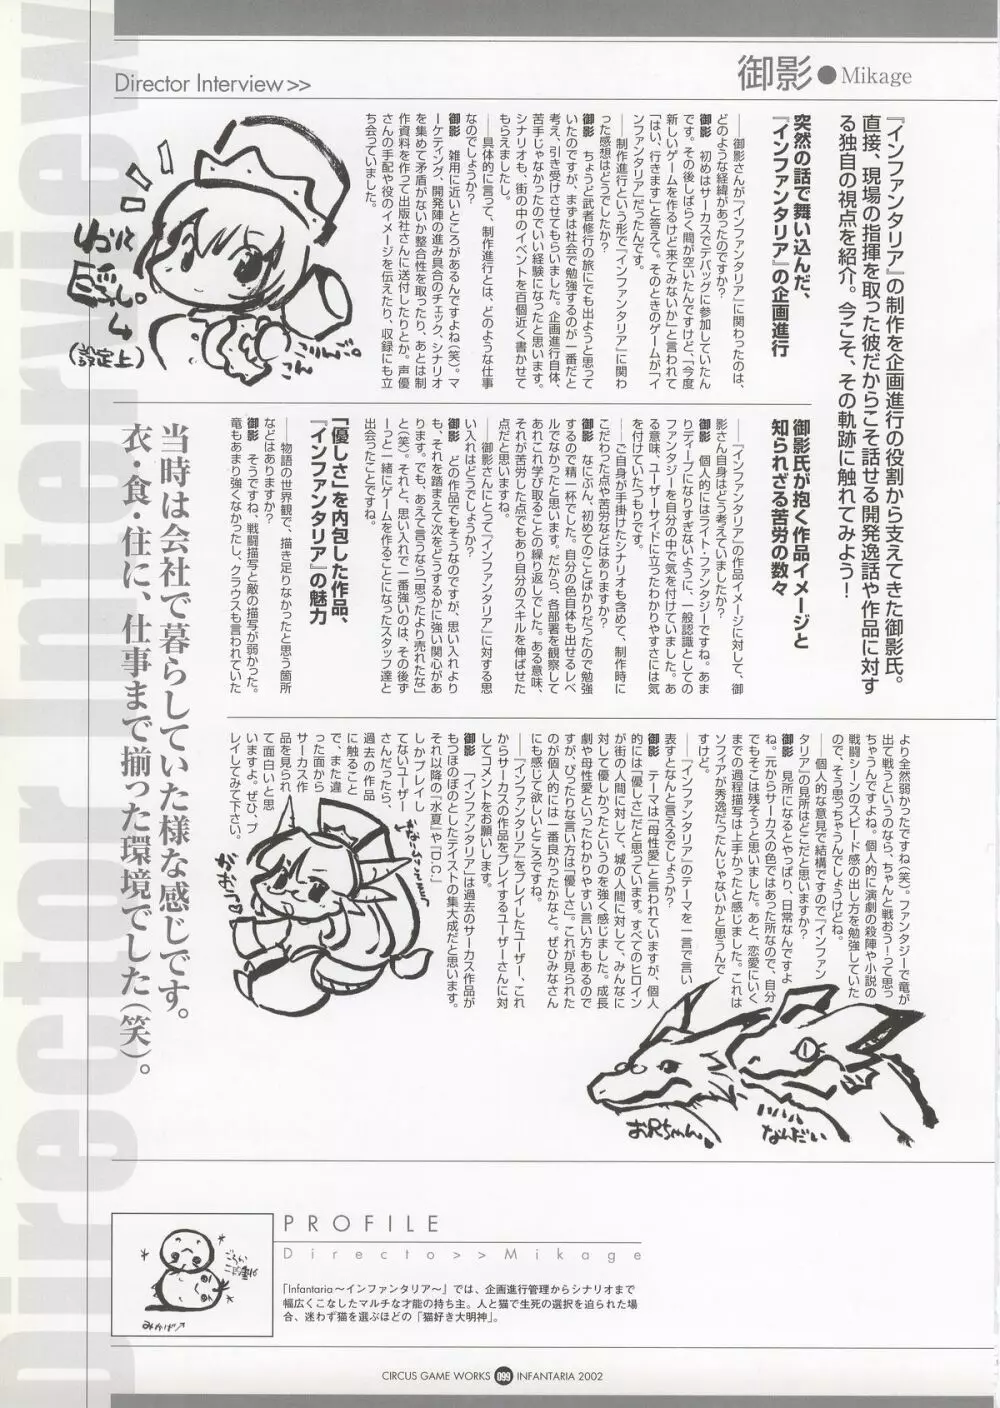 Director Interview>>
御影●Mikage
『インファンタリア』の制作を企画進行の役割から支えてきた御影氏。
直接、現場の指揮を取った彼だからこそ話せる開発逸話や作品に対す
る独自の視点を紹介。今こそ、その軌跡に触れてみよう！
突然の話で舞い込んだ、
『インファンタリア』の企画進行
──御影さんが『インファンタリア』に関わったのは、
どのような経緯があったのですか？
御影　初めはサーカスでデバッグに参加していたん
です。その後しばらく間が空いたんですけど、「今度
新しいゲームを作るけど来てみないか」と言われて
「はい、行きます」と答えて。そのときのゲームが『イ
ンファンタリア』だったんです。
──制作進行という形で『インファンタリア』に関わ
った感想はどうでしたか？
御影　ちょうど武者修行の旅にでも出ようと思って
いたのですが、まずは社会で勉強するのが一番だと
考え、引き受けさせてもらいました。企画進行自体、
苦手じゃなかったのでいい経験になったと思います。
シナリオも、街の中のイベントを百個近く書かせて
もらえましたし。
──具体的に言って、制作進行とは、どのような仕事
なのでしょうか？
御影　雑用に近いところがあるんですよね（笑）。マ
ーケティング、開発陣の進み具合のチェック、シナリオ
を集めて矛盾がないか整合性を取ったり、あとは制
作資料を作って出版社さんに送付したりとか。声優
さんの手配や役のイメージを伝えたり、収録にも立
ち会っていました。
巨乳。
(設定上)
こりんご。
御影氏が抱く作品イメージと
知られざる苦労の数々
──『インファンタリア』の作品イメージに対して、御
影さん自身はどう考えていましたか？
御影　個人的にはライト・ファンタジーですね。あま
りディープになりすぎないように、一般認識としての
ファンタジーを自分の中で気を付けていました。あ
る意味、ユーザーサイドに立ったわかりやすさには気
を付けていたつもりです。
──ご自身が手掛けたシナリオも含めて、制作時に
こだわった点や苦労などはありますか？
御影　なにぶん、初めてのことばかりだったので勉強
するので精一杯でした。自分の色自体も出せるレベ
ルでなかったと思います。だから、各部署を観察して
あれこれ学び取ることの繰り返しでした。ある意味、
それが苦労した点でもあり自分のスキルを伸ばせた
点だと思いますね。
──御影さんにとって『インファンタリア』に対する思
い入れはどうでしょうか？
御影　どの作品でもそうなのですが、思い入れより
も、それを踏まえて次をどうするかに強い関心があ
ります。でも、あえて言うなら「思ったより売れたな」
と（笑）。それと、思い入れで一番強いのは、その後ず
ーっと一緒にゲームを作ることになったスタッフ達と
出会ったことですね。
「優しさ」を内包した作品、
『インファンタリア』の魅力
──物語の世界観で、描き足りなかったと思う箇所
などはありますか？
御影　そうですね。戦闘描写と敵の描写が弱かった。
竜もあまり強くなかったし、クラウスも言われていた
より全然弱かったですね（笑）。ファンタジーで竜が
出て戦うというのなら、ちゃんと戦おう！って思っ
ちゃうんですよね。個人的に演劇の殺陣や小説の
戦闘シーンのスピード感の出し方を勉強していた
ので、そう思っちゃうんでしょうけどね。
──個人的な意見で結構ですので『インファン
タリア』の見所はどこだと思いますか？
御影　見所になるとやっぱり、日常なんですよ
ね。元からサーカスの色ではあった所なので、自分
でもそこは残そうと思いました。あと、恋愛にいく
までの過程描写は上手かったと感じました。これは
ソフィアが秀逸だったんじゃないかと思うんで
すけど。
──『インファンタリア』のテーマを一言で言い
表すとなんと言えるでしょうか？
御影　テーマは「母性愛」と言われていますが、個人
的には「優しさ」だと思っています。すべてのヒロイン
が街の人間に対して、城の人間に対して、みんなに
対して優しかったというのを強く感じました。成長
劇や母性愛といったわかりやすい言い方もあるので
すが、ぴったりな言い方は「優しさ」。これが見られた
のが個人的には一番良かったかなと。ぜひみなさん
にも感じて欲しいところですね。
──『インファンタリア』をプレイしたユーザー、これ
からサーカスの作品をプレイするユーザーさんに対
してコメントをお願いします。
御影　『インファンタリア』は過去のサーカス作品が
もつほのぼのとしたテイストの集大成だと思います。
それ以降の『水夏』や『D.C.』
しかプレイし
てないユーザー
さんだったら、
過去の作品
に触ること
で、また違
った面から
サーカス作
品を見られ
て面白いと思
いますよ。ぜひ、プ
レイしてみて下さい。
当時は会社で暮らしていた様な感じです。
衣・食・住に、仕事まで揃った環境でした（笑）。
かおー♡
お兄ちゃん。
なんだい
PROFILE
Directo>>Mikage
『Infantaria～インファンタリア～』では、企画進行管理からシナリオまで
幅広くこなしたマルチな才能の持ち主。人と猫で生死の選択を迫られた場
合、迷わず猫を選ぶほどの「猫好き大明神」。
CIRCUS GAME WORKS 099 INFANTARIA 2002
Director Interview